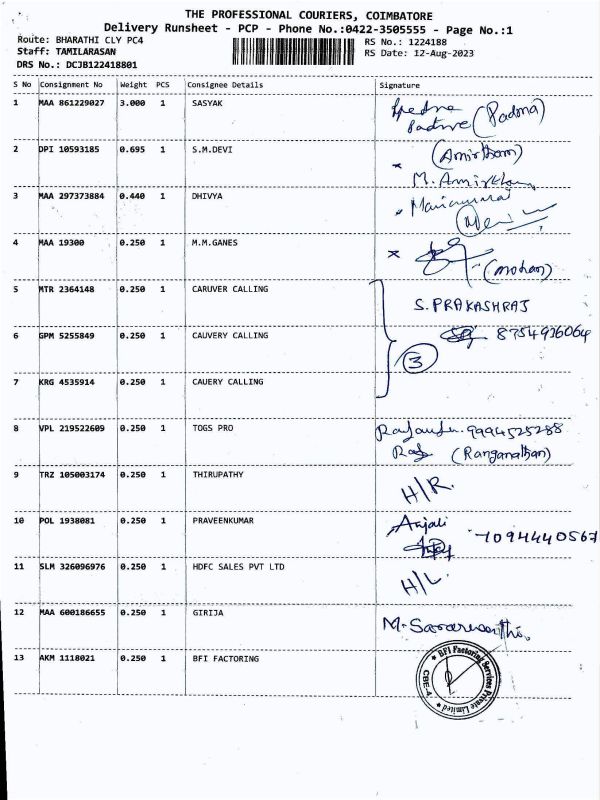 THE PROFESSIONAL COURIERS, COIMBATORE
Delivery Runsheet - PCP - Phone No.:0422-3505555 - Page No.:1
Route: BHARATHI CLY PC4
RS No.: 1224188
Staff: TAMILARASAN
RS Date: 12-Aug-2023
DRS No.: DCJB122418801
S No Consignment No Weight PCS Consignee Details Signature
1 MAA 861229027 3.000 1 SASYAK
(Padona)
2 DPI 10593185 0.695 1 S.M.DEVI (Amirtham)
M. Amirtham
3 MAA 297373884 0.440 1 DHIVYA
4 MAA 19300 0.250 1 M.M.GANES
(mohan)
5 MTR 2364148 0.250 1 CARUVER CALLING
S. PRAKASHRAJ
6 GPM 5255849 0.250 1 CAUVERY CALLING 8754936064
3
7 KRG 4535914 0.250 1 CAUERY CALLING
8 VPL 219522609 0.250 1 TOGS PRO 9994525288
(Ranganathan)
9 TRZ 105003174 0.250 1 THIRUPATHY H/R.
10 POL 1938081 0.250 1 PRAVEENKUMAR Anjali
7094440567
11 SLM 326096976 0.250 1 HDFC SALES PVT LTD H/L.
12 MAA 600186655 0.250 1 GIRIJA M. Saraswathi.
13 AKM 1118021 0.250 1 BFI FACTORING
BFI Factoring Services Private Limited
CBE-4